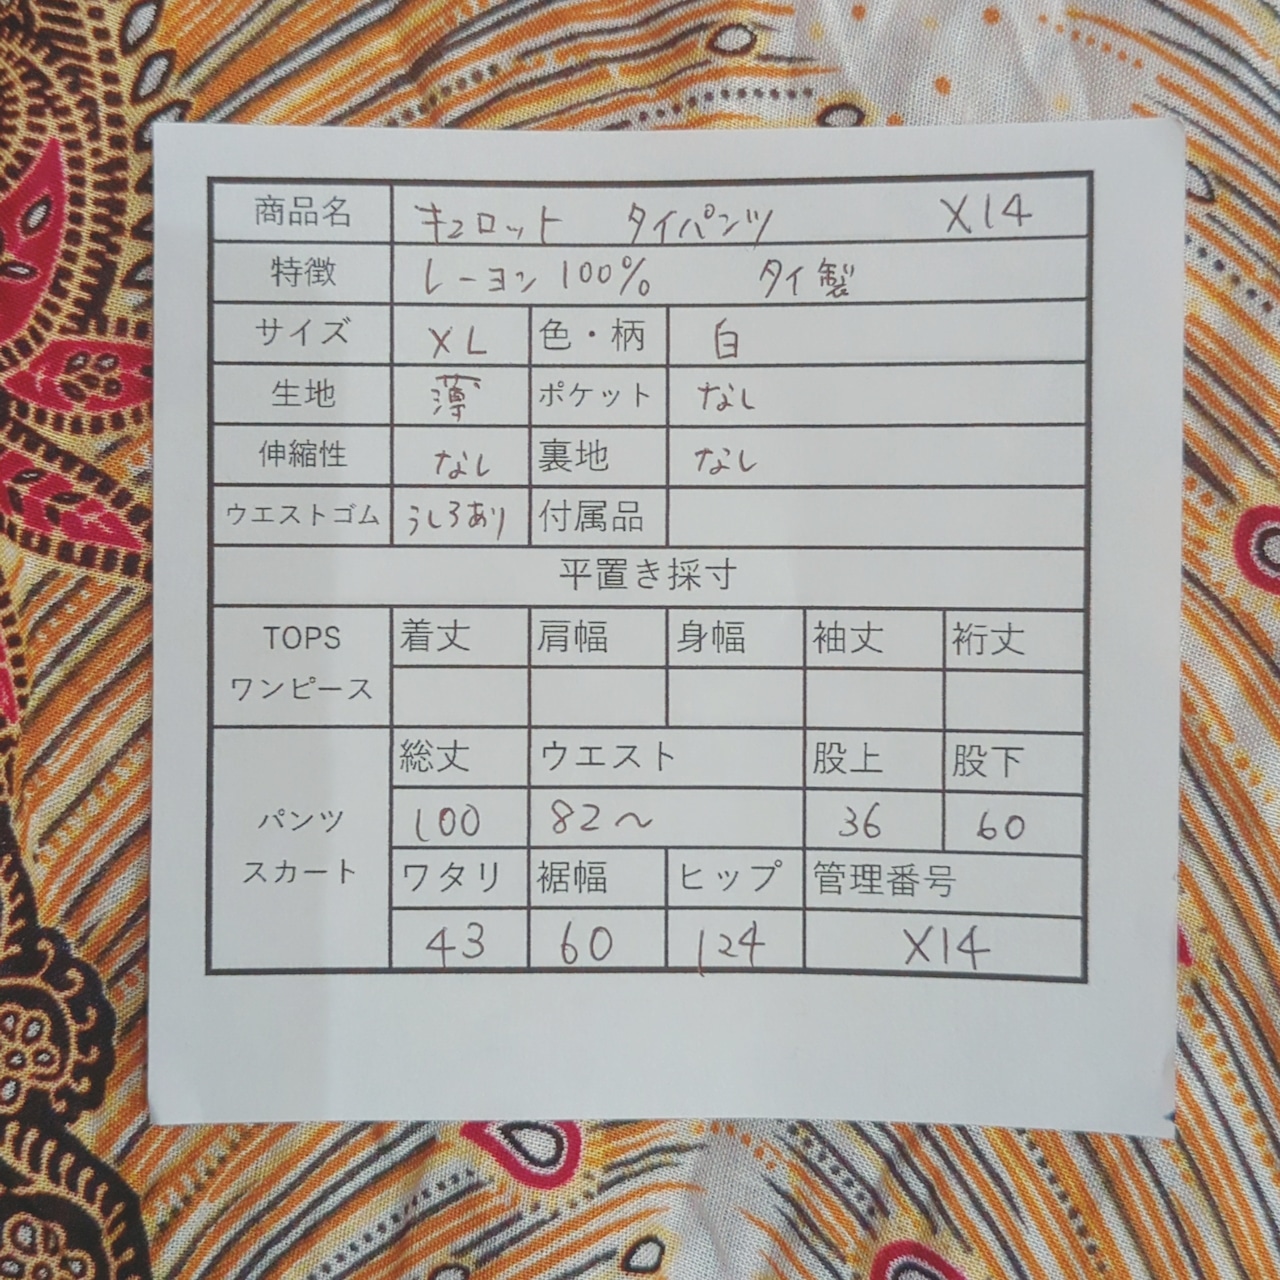 商品名 キュロット タイパンツ X14
特徴 レーヨン 100% タイ製
サイズ XL 色・柄 白
生地 薄 ポケット なし
伸縮性 なし 裏地 なし
ウエストゴム うしろあり 付属品
平置き採寸
TOPS 着丈 肩幅 身幅 袖丈 裄丈
ワンピース
総丈 ウエスト 股上 股下
パンツ 100 82〜 36 60
スカート ワタリ 裾幅 ヒップ 管理番号
43 60 124 X14